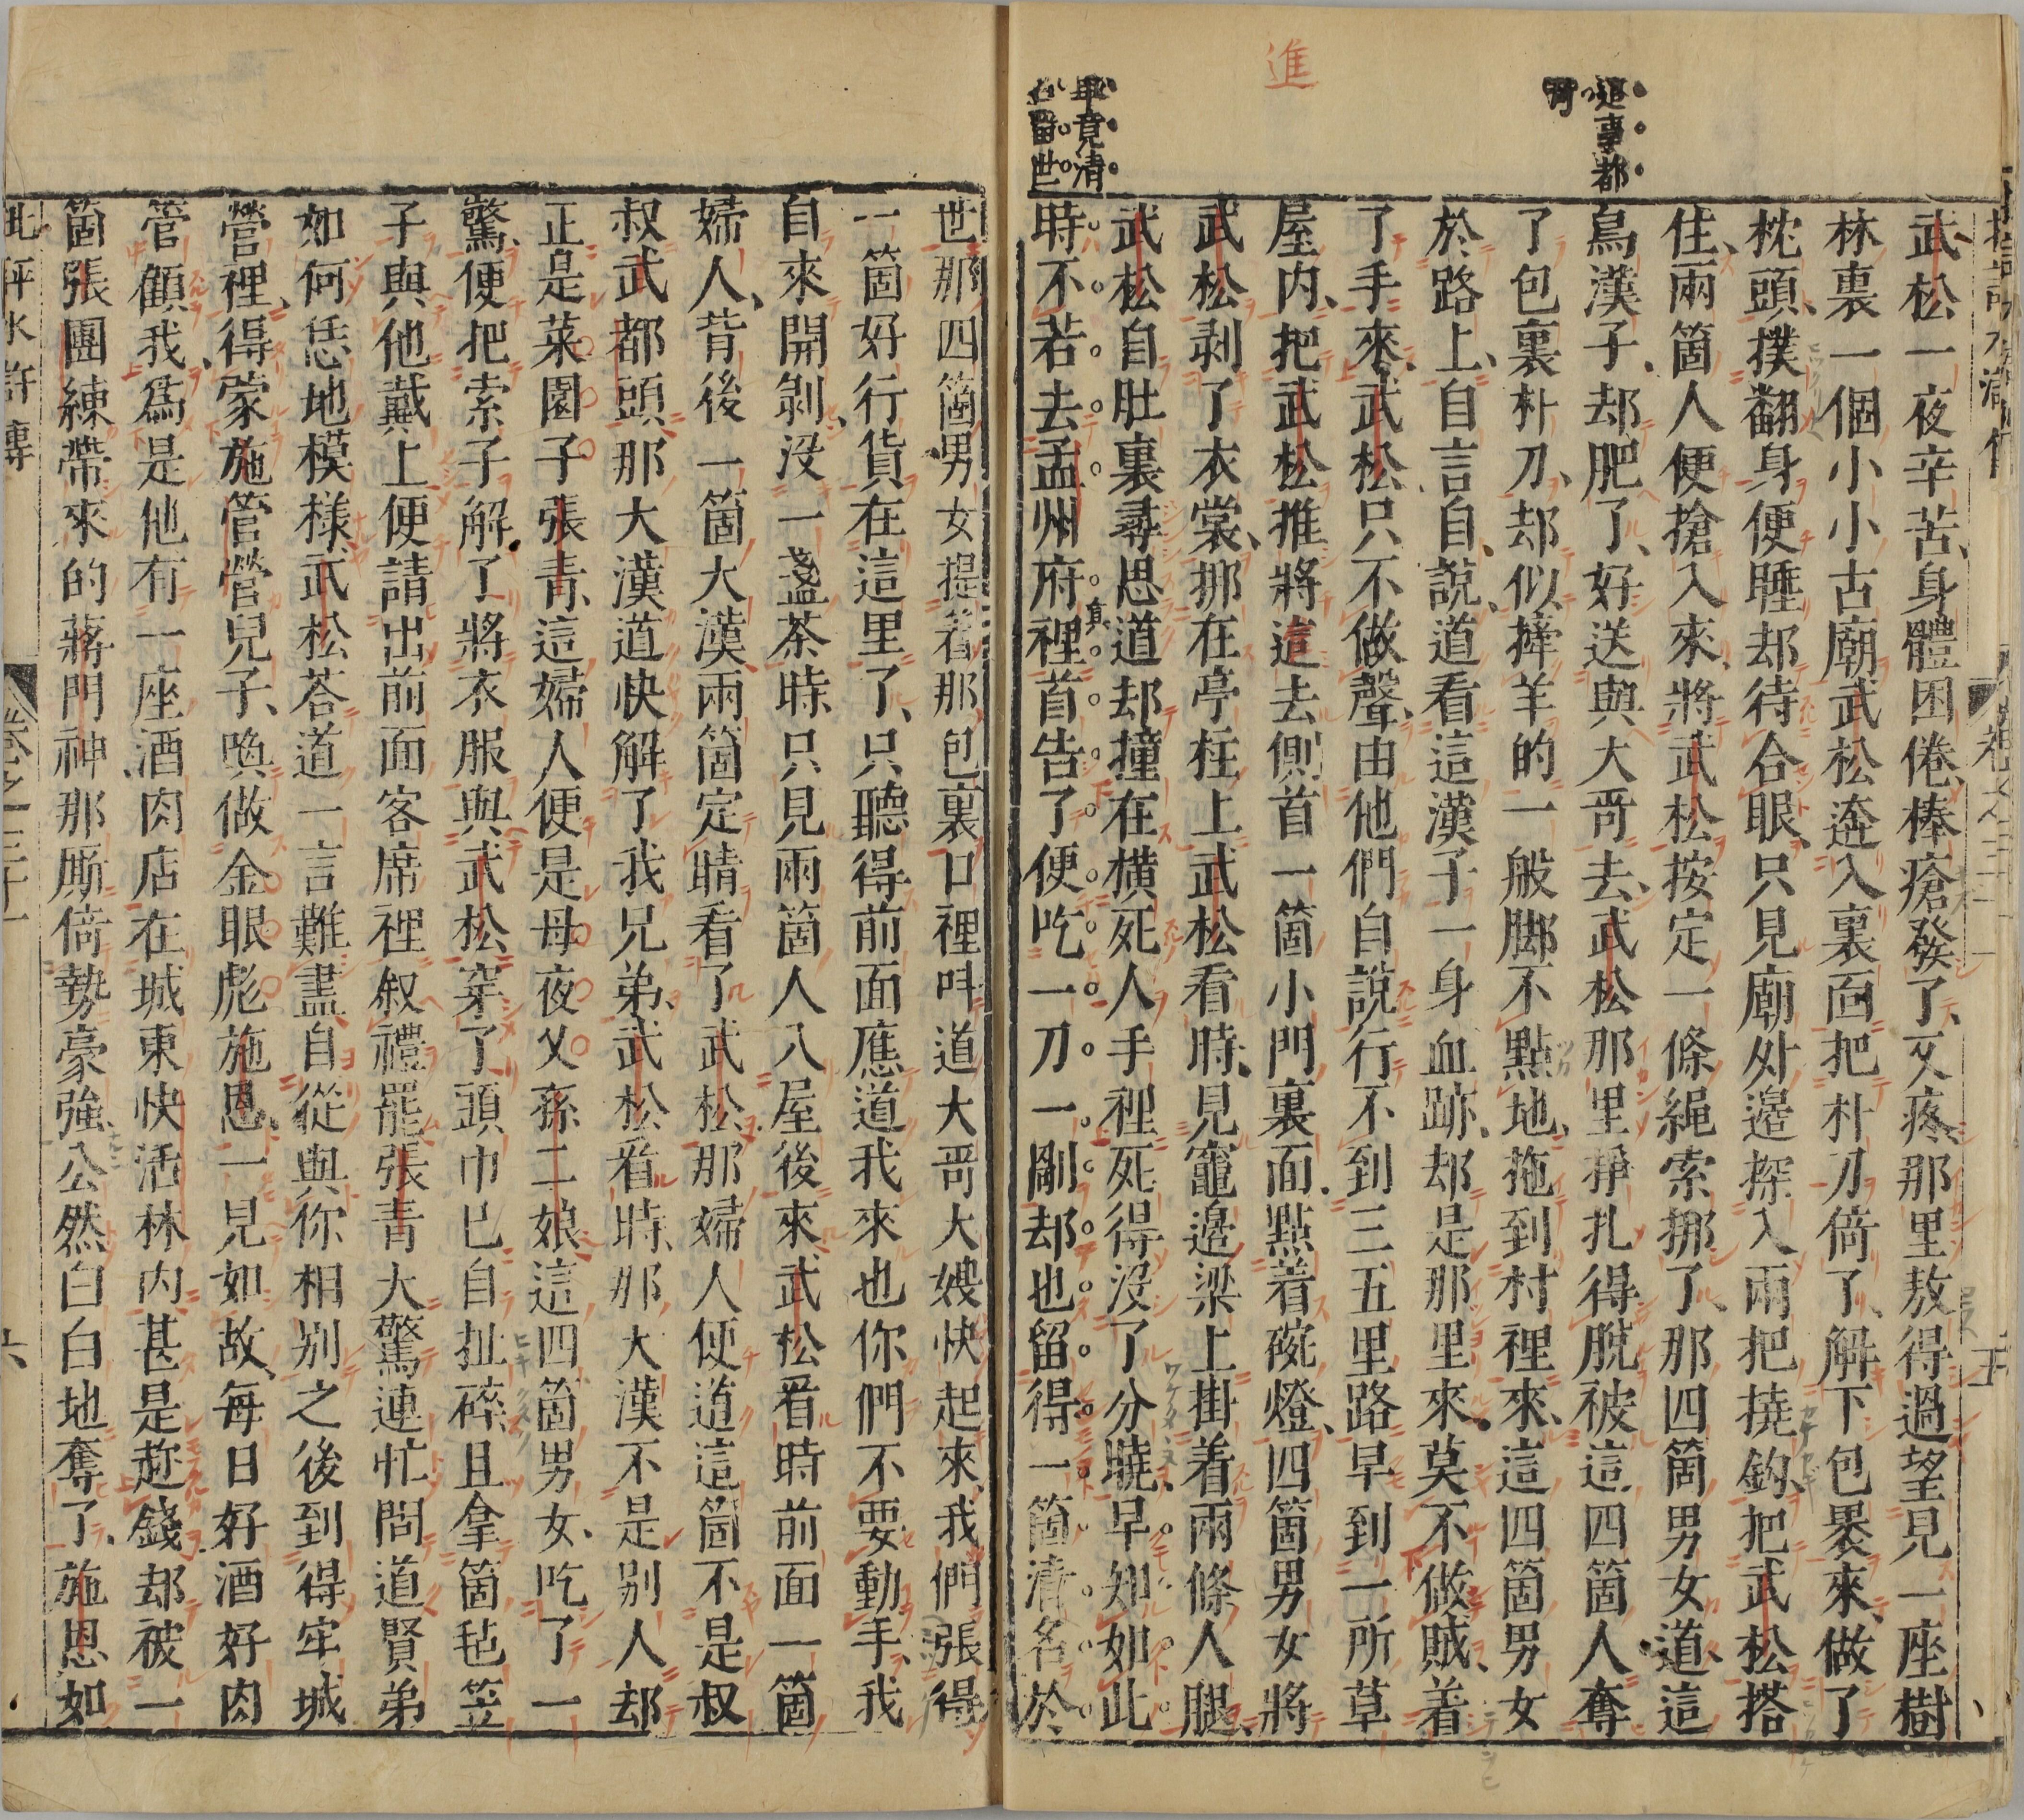 進
這事都
可
畢竟清
名留世
武松一夜辛苦、身體困倦、棒瘡發了、又疼、那里熬得過、望見一座樹
林裏一個小小古廟、武松逩入裏面、把朴刀倚了、解下包裹來、做了
枕頭、撲翻身便睡、却待合眼、只見廟外邉探入兩把撓鈎、把武松搭
住、兩箇人便搶入來、將武松按定、一條繩索挷了、那四箇男女道、這
鳥漢子、却肥了、好送與大哥去、武松那里掙扎得脫、被這四箇人奪
了包裹朴刀、却似捧羊的一般、脚不點地、拖到村裡來、這四箇男女
於路上、自言自說、道看這漢子一身血跡、却是那里來、莫不做賊、着
了手來、武松只不做聲、由他們自說、行不到三五里路、早到一所草
屋内、把武松推將這去、側首一箇小門裏面、點着碗燈、四箇男女將
武松剥了衣裳、挷在亭柱上、武松看時、見竈邉梁上掛着兩條人腿、
武松自肚裏尋思道、却撞在横死人手裡、死得没了分曉、早知如此
時、不若去孟州府裡首告了、便吃一刀一剮、却也留得一箇清名於
真
世、那四箇男女提着那包裏口裡呌道、大哥大嫂快起來、我們張得
一箇好行貨在這里了、只聽得前面應道、我來也、你們不要動手、我
自來開剥、没一盞茶時、只見兩箇人入屋後來、武松看時、前面一箇
婦人、背後一箇大漢、兩箇定睛看了武松、那婦人便道、這箇不是叔
叔武都頭、那大漢道、快解了我兄弟、武松看時、那大漢不是别人、却
正是菜園子張青、這婦人便是母夜义孫二娘、這四箇男女吃了一
驚、便把索子解了、將衣服與武松穿了、頭巾已自扯碎、且拿箇毡笠
子與他戴上、便請出前面客席裡、叙禮罷、張青大驚、連忙問道、賢弟
如何恁地模樣、武松荅道、一言難盡、自從與你相别之後、到得牢城
營裡、得蒙施管營兒子、喚做金眼彪施恩、一見如故、每日好酒好肉
管顧我、爲是他有一座酒肉店在城東快活林内、甚是趂錢、却被一
箇張團練帶來的蔣門神那厮、倚勢豪強、公然白白地奪了、施恩如
批評水滸傳
卷之三十一
六